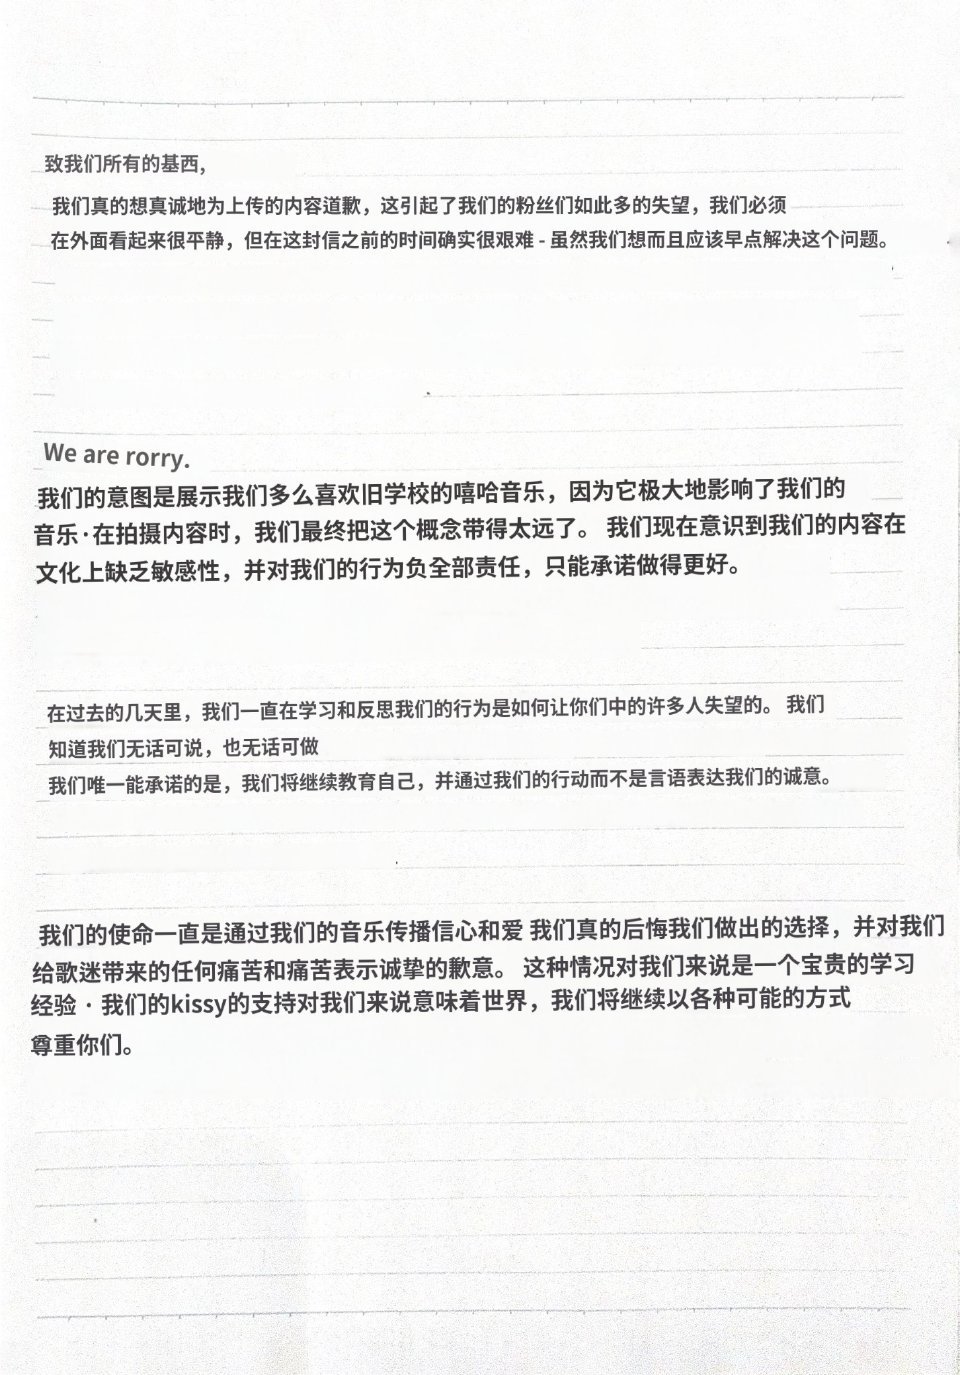 致我们所有的基西,
我们真的想真诚地为上传的内容道歉，这引起了我们的粉丝们如此多的失望，我们必须
在外面看起来很平静，但在这封信之前的时间确实很艰难 - 虽然我们想而且应该早点解决这个问题。
We are rorry.
我们的意图是展示我们多么喜欢旧学校的嘻哈音乐，因为它极大地影响了我们的
音乐·在拍摄内容时，我们最终把这个概念带得太远了。 我们现在意识到我们的内容在
文化上缺乏敏感性，并对我们的行为负全部责任，只能承诺做得更好。
在过去的几天里，我们一直在学习和反思我们的行为是如何让你们中的许多人失望的。 我们
知道我们无话可说，也无话可做
我们唯一能承诺的是，我们将继续教育自己，并通过我们的行动而不是言语表达我们的诚意。
我们的使命一直是通过我们的音乐传播信心和爱 我们真的后悔我们做出的选择，并对我们
给歌迷带来的任何痛苦和痛苦表示诚挚的歉意。 这种情况对我们来说是一个宝贵的学习
经验 · 我们的kissy的支持对我们来说意味着世界，我们将继续以各种可能的方式
尊重你们。